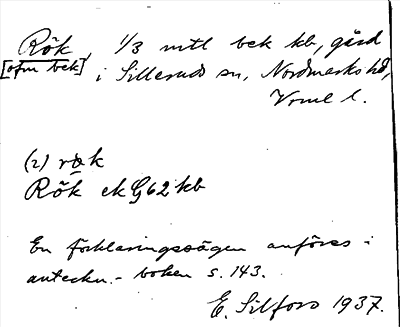 Rök, 1/3 mtl bek kb, gård
[ofm bek] i Silleruds sn, Nordmarks hd,
Vrml l.
(2) rök
Rök ek G62 kb
En förklaringssägen anföres i
anteckn.-boken s. 143.
E. Silfors 1937.